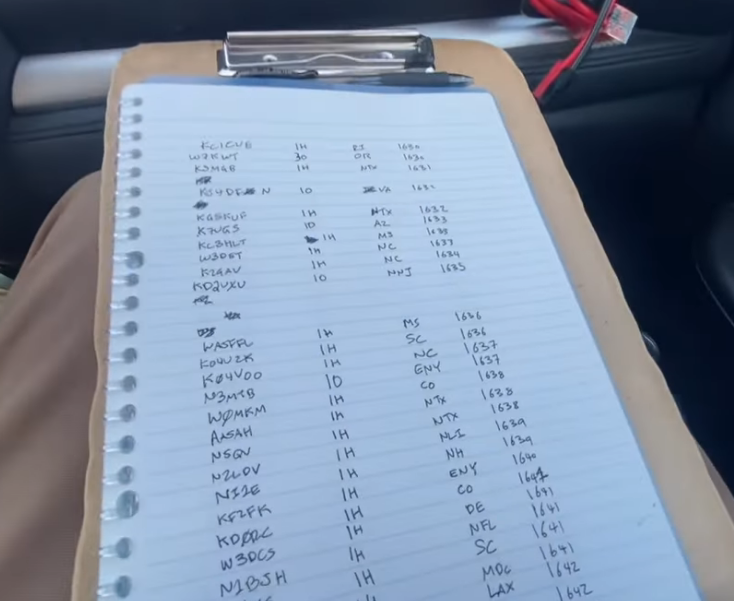 KC1CUE 1H RI 1630
W7KWT 30 OR 1630
K5MGE 1H NTX 1631
KJ4DF N 10 VA 1631
KG5KUF 1H NTX 1632
K7UGS 1D AZ 1633
KC3HLT 1H 1635
W3DET 1H NC 1637
K2GAV 1H NC 1634
KD2VXU 10 NNJ 1635
1H MS 1636
KO4UZK 1H SC 1636
KØ4VOO 1H NC 1637
N3MTB 1D ENY 1637
WØMKM 1H CO 1638
AA5AH 1H NTX 1638
N5QV 1H NTX 1638
N2LOV 1H NLI 1639
N1IE 1H NH 1639
KF2FK 1H ENY 1640
KDØRC 1H CO 1641
W3DCS 1H DE 1641
N1BJH 1H NFL 1641
SC 1641
MDC 1642
LAX 1642